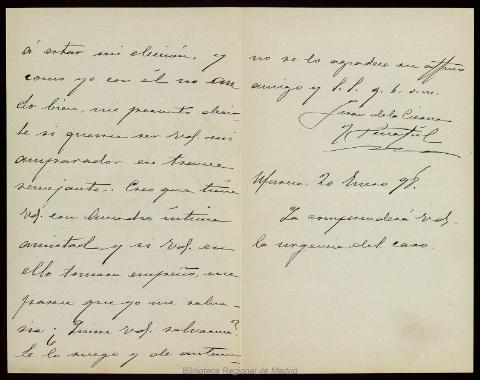 á estar mi elección, y
como yo con él no an-
do bien, me permito decir-
le si querria ser Vd. mi
amparador en trance
semejante. Creo que tiene
Vd. con Amadro íntima
amistad, y si Vd. en
ello tomara empeño, me
parece que yo me salva-
ria; ¿Quiere Vd. salvarme?
Se lo ruego y de antema-
no se lo agradece su affmo
amigo y S. S. q. b. s. m.
Juan de la Cierva
y Peñafiel
Murcia. 20 Enero 98.
Ya comprenderá Vd.
la urgencia del caso.
Biblioteca Regional de Madrid